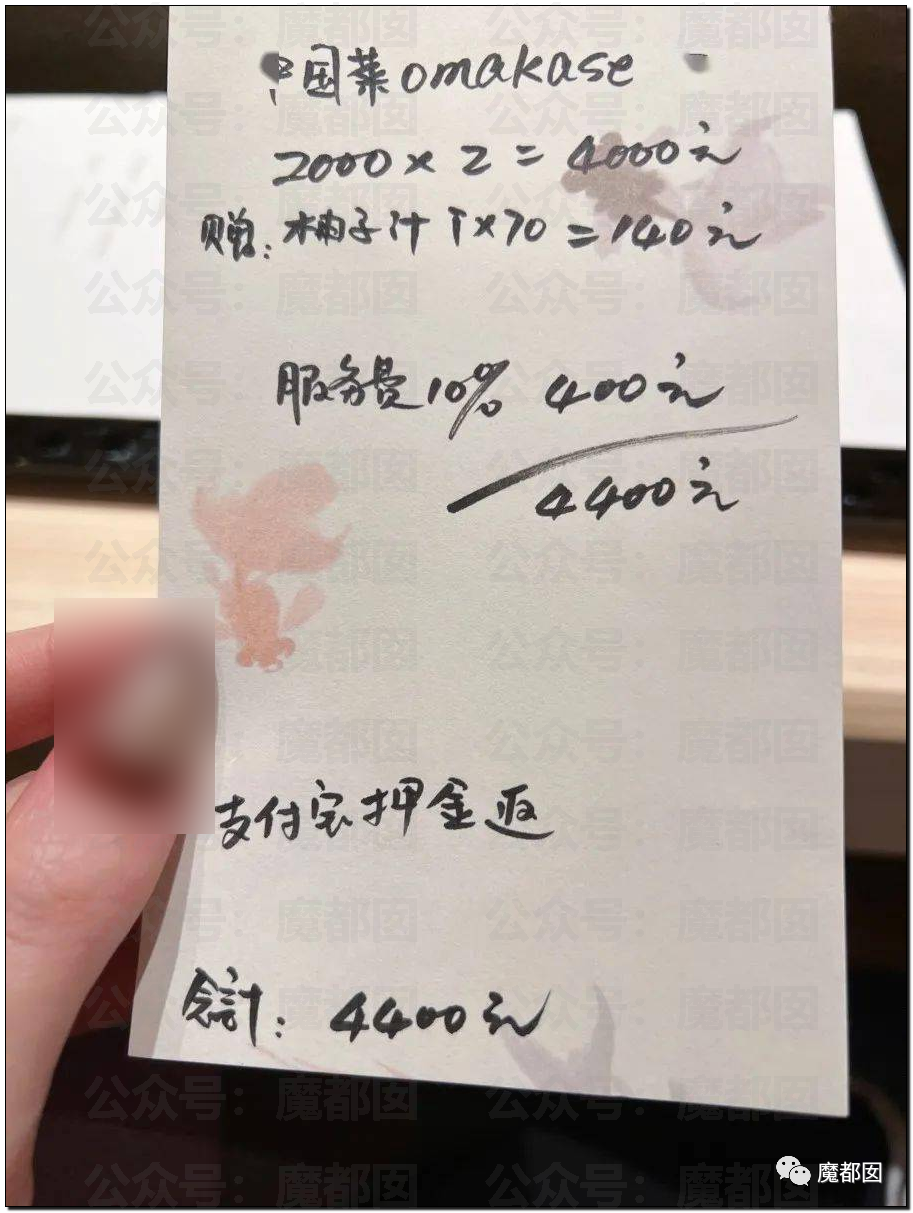 中国菜omakase
2000×2=4000元
赠:柚子汁 ×70=140元
服务费10% 400元
4400元
支付宝押金返
合計:4400元
魔都囡